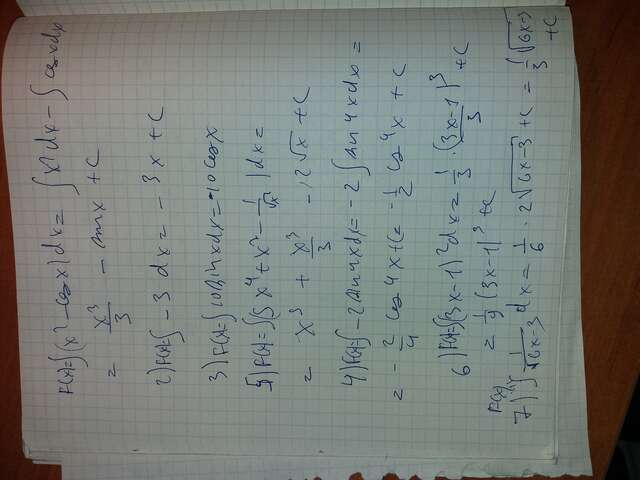 F(x)=∫(x² - cos x)dx = ∫x²dx - ∫cos x dx
= x³/3 - sin x + C
2) F(x)=∫-3 dx = -3x + C
3) F(x)=∫10 sin x dx = -10 cos x
5) F(x)=∫(5x⁴ + x² - 1/√x)dx =
= x⁵ + x³/3 - 2√x + C
4) F(x)=∫-2 sin 4x dx = -2∫sin 4x dx =
= -2/4 cos 4x + C = -1/2 cos 4x + C
6) F(x)=∫(3x-1)²dx = 1/3 · (3x-1)³/3 + C
= 1/9 (3x-1)³ + C
F(x)
7) ∫ 1/√(6x-3) dx = 1/6 · 2√(6x-3) + C = 1/3 √(6x-3)
+ C